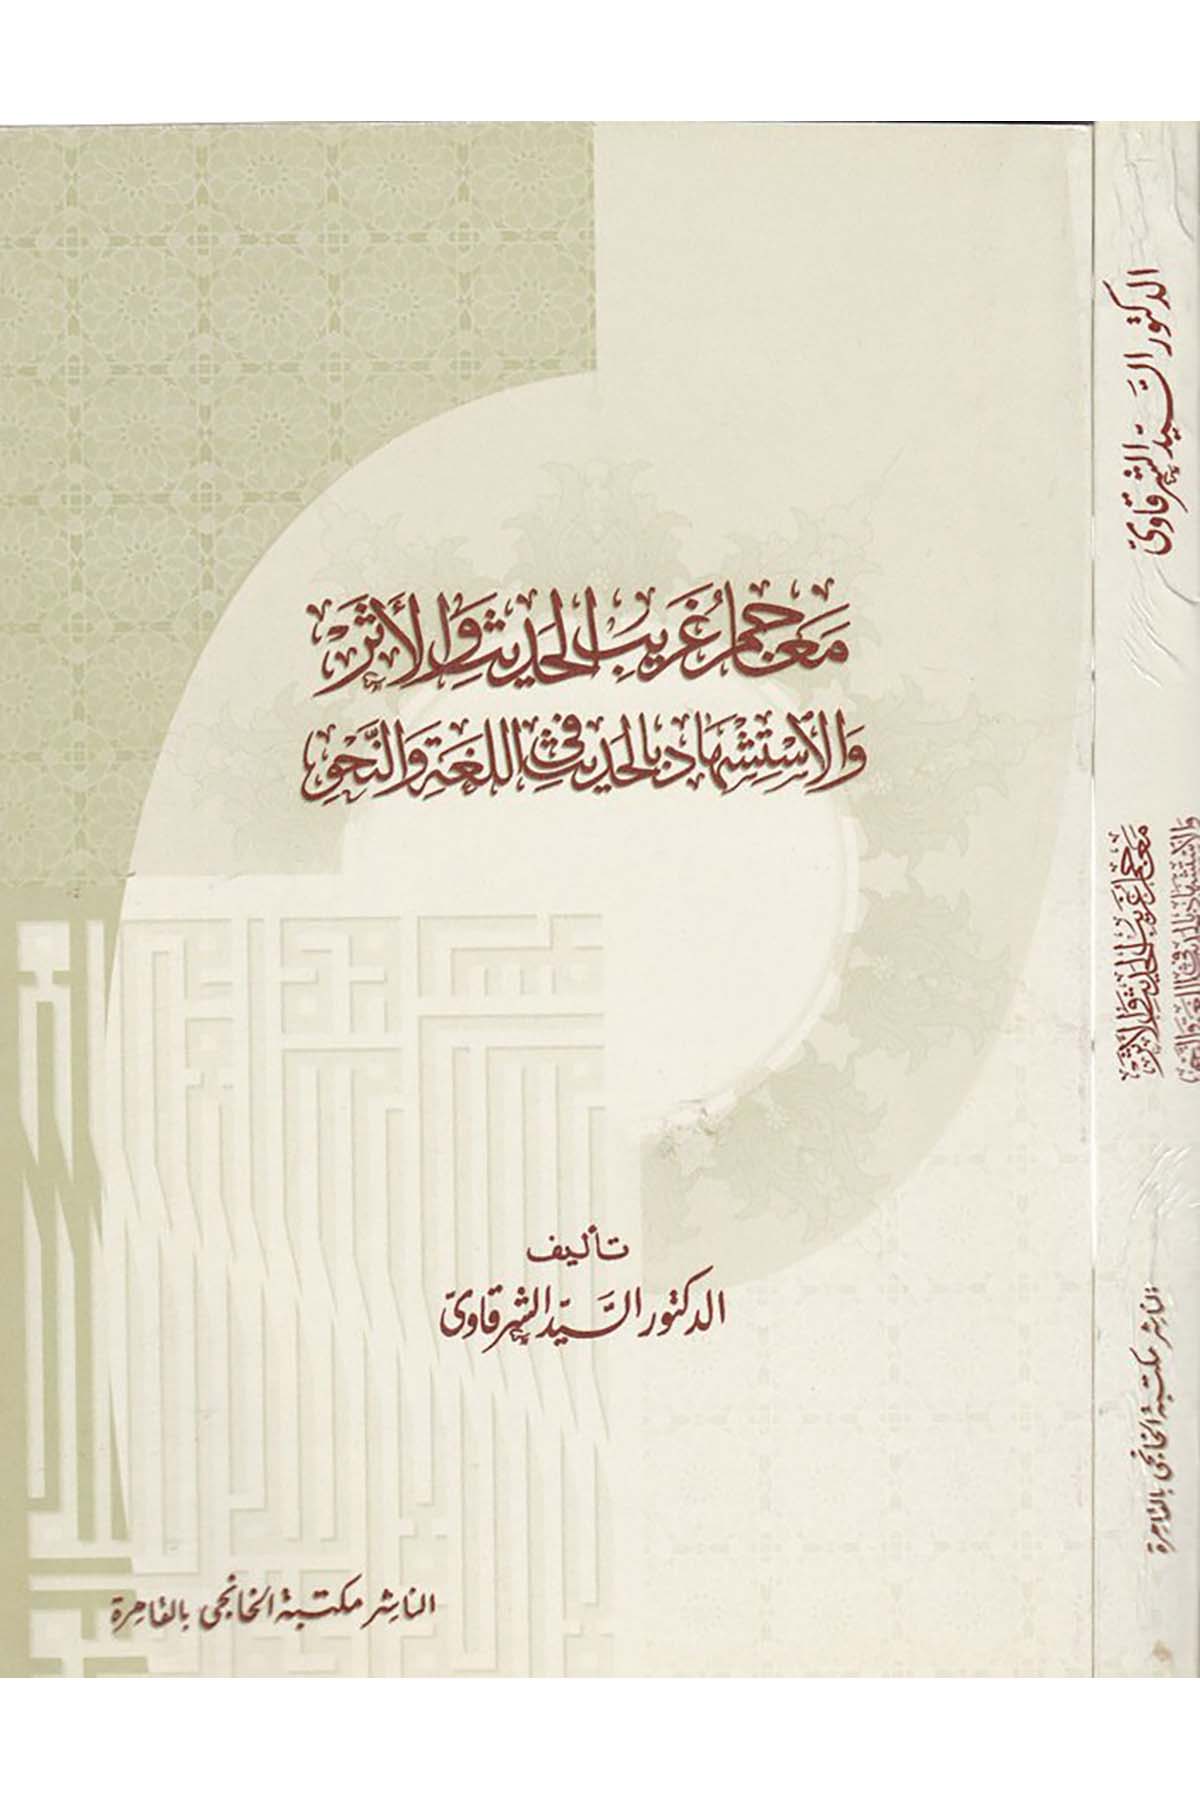 مَعَاجِمُ غَريبِ الحَديثِ وَالأَثَرْ
وَالاسْتِشْهَادِ بالحَديثِ في اللغَةِ وَالنَّحْوِ
تأليف
الدكتور السَّيّد الشرقاوىّ
الناشر مكتبة الخانجى بالقاهرة
الدكتور السَّيّد الشرقاوىّ
مَعَاجِمُ غَريبِ الحَديثِ وَالأَثَرْ
وَالاسْتِشْهَادِ بالحَديثِ في اللغَةِ وَالنَّحْوِ
الناشر مكتبة الخانجى بالقاهرة